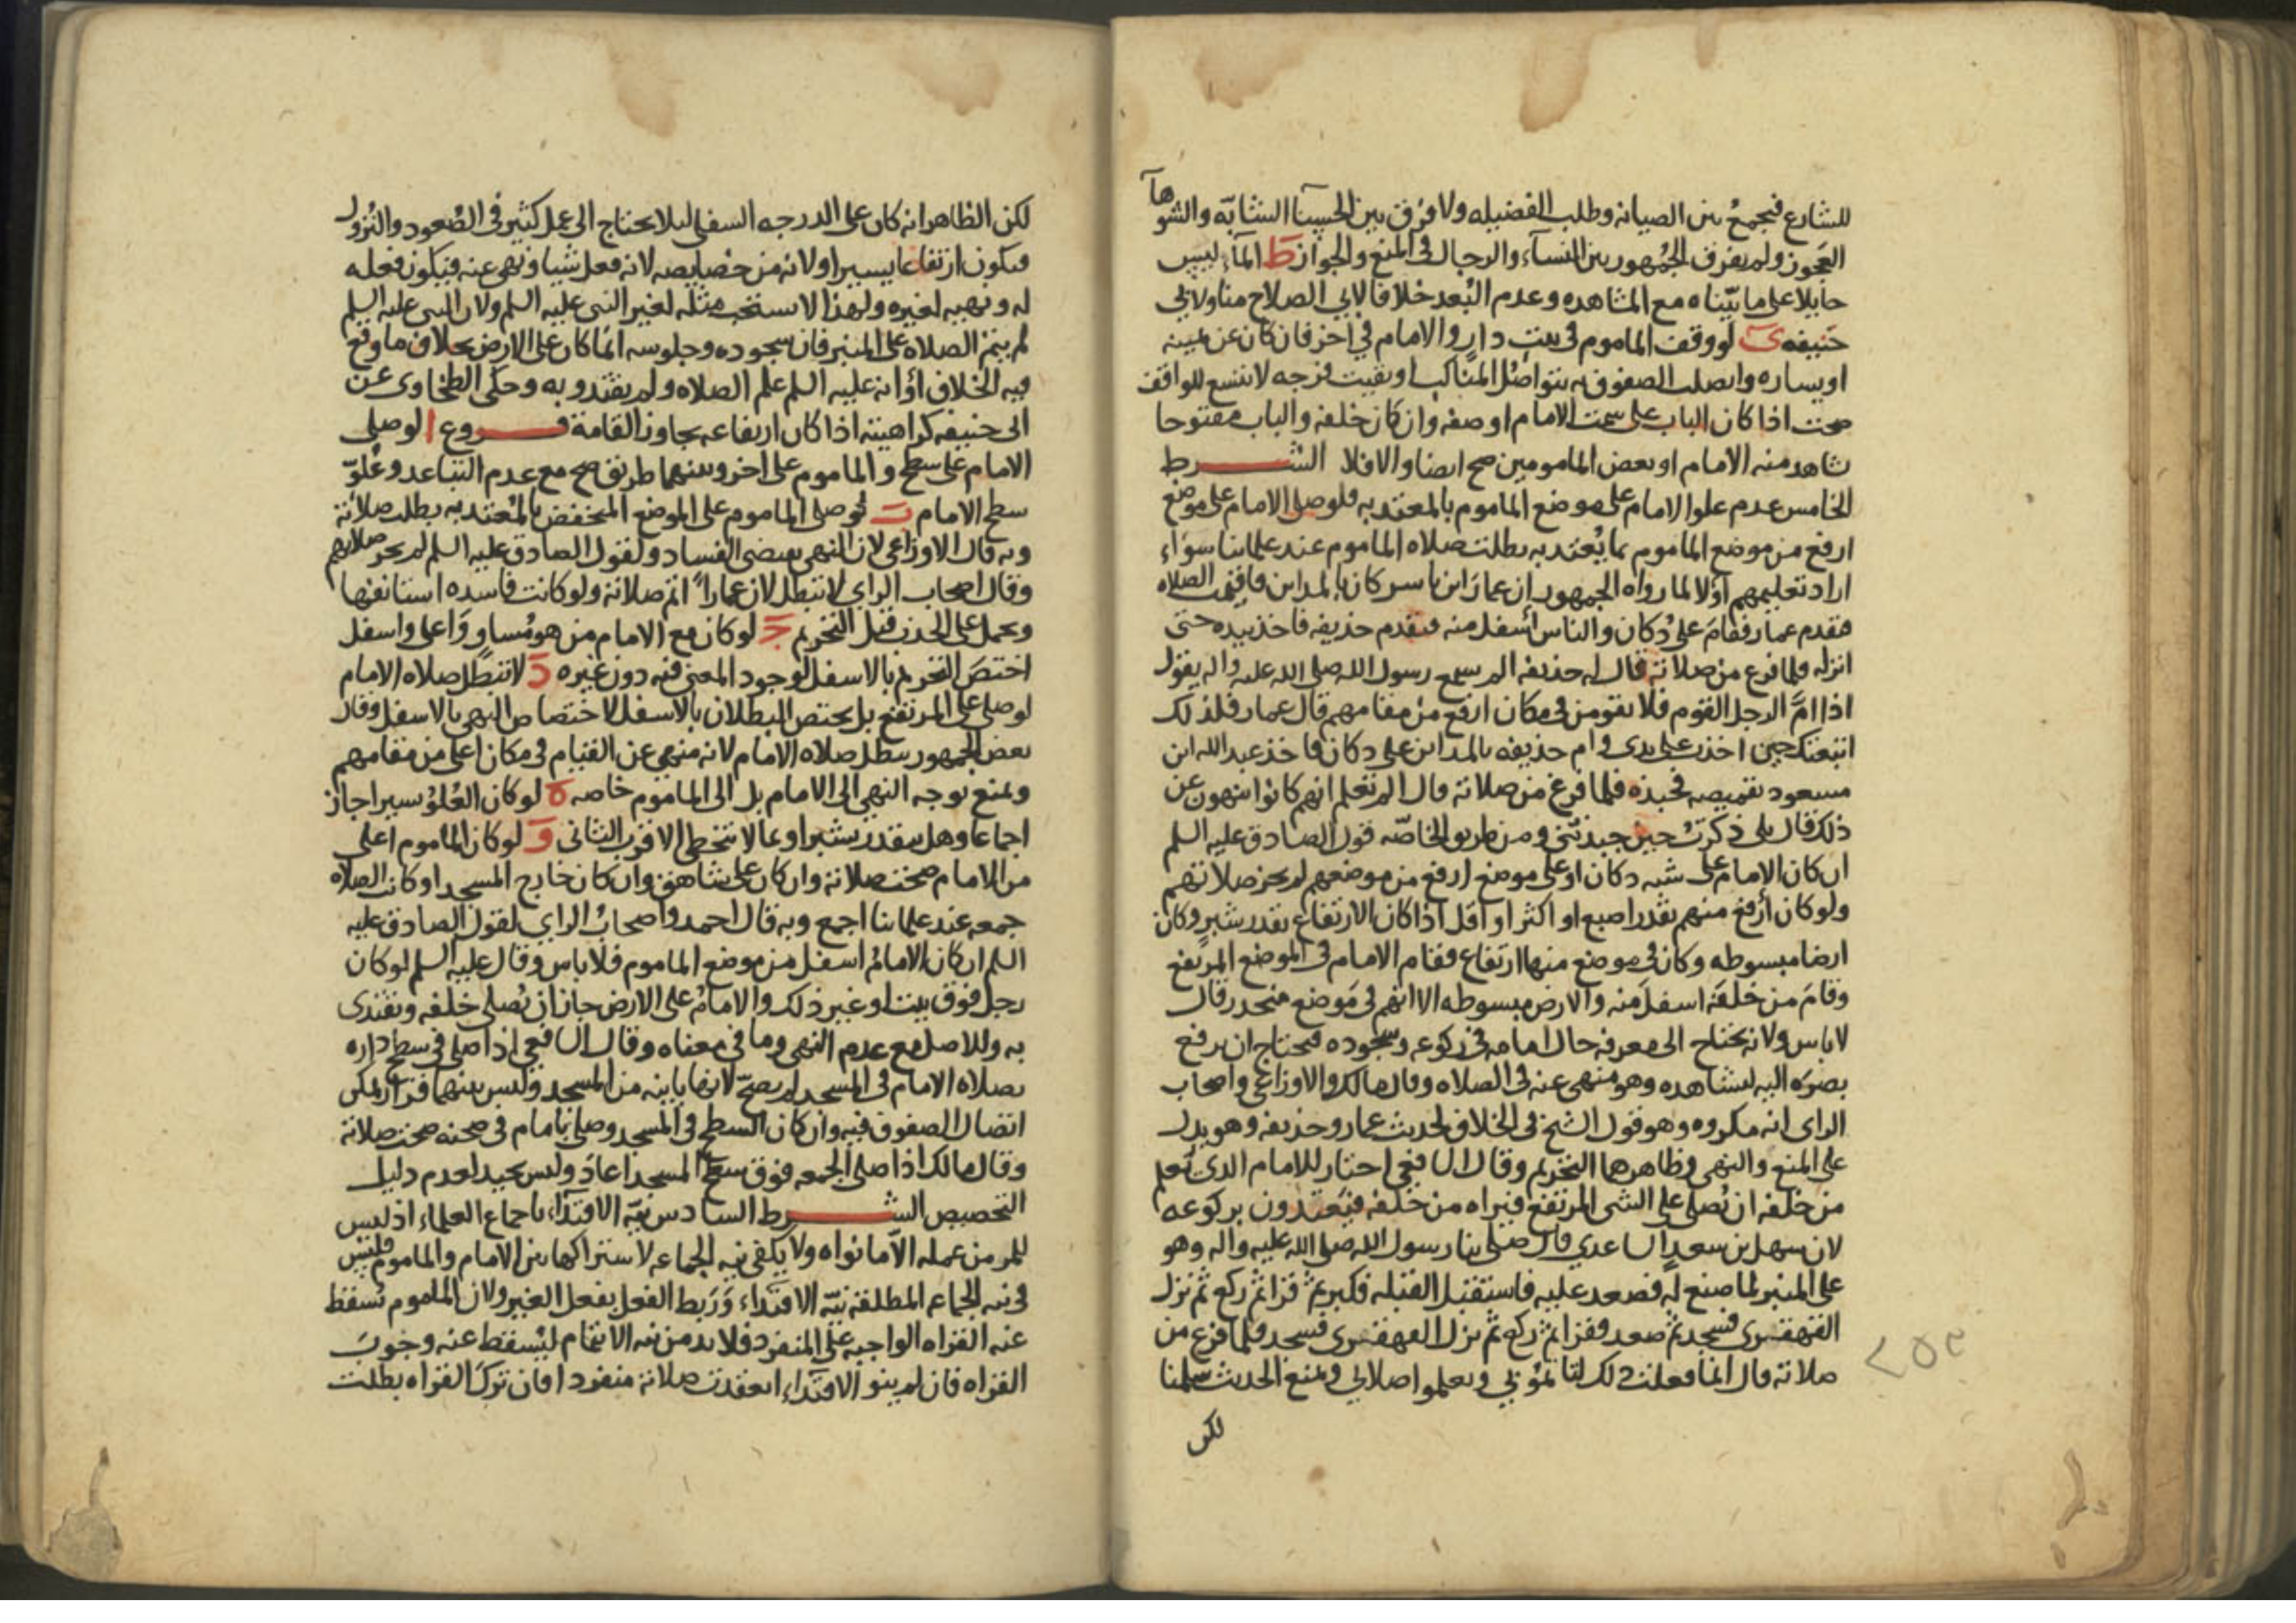 للشارع فيجمع بين الصيانه وطلب الفضيله ولا فرق بين الحسنا الشابّه والشوهآ
العجوز ولم يفرق الجمهور بين النسآء والرجال في المنع والجواز ط المآء ليس
حايلا على ما بيّناه مع المشاهده وعدم البُعد خلافا لابي الصلاح منا ولابي
حنيفه ى لو وقف الماموم في بيت دار والامام في اخر فان كان عن يمينه
او يساره واتصلت الصفوف به بتواصُل المناكب او بقيت فرجه لا تتسع للواقف
صحت اذا كان الباب على سمت الامام او صفه وان كان خلفه والباب مفتوحا
شاهد منه الامام او بعض المامومين صح ايضا والا فلا الشرط
الخامس عدم علو الامام على موضع الماموم بالمعتد به فلو صلى الامام على موضع
ارفع من موضع الماموم بما يُعتد به بطلت صلاه الماموم عند علمائنا سوآء
اراد تعليمهم اولا لما رواه الجمهور ان عمار ابن ياسر كان بالمداين فاقيمت الصلاه
فتقدم عمار فقام على دُكان والناس أسفل منه فتقدم حذيفه فاخذ بيده حتى
انزله فلما فرغ من صلاته قال له حذيفه الم تسمع رسول الله صلى الله عليه واله يقول
اذا امَّ الرجل القوم فلا يقومن في مكان ارفع من مقامهم قال عمار فلذلك
اتبعتك حين اخذت على يدي وام حذيفه بالمداين على دكان فاخذ عبد الله ابن
مسعود بقميصه فجبذه فلما فرغ من صلاته قال الم تعلم انهم كانوا ينهون عن
ذلك قال بلى ذكرتُ حين جبذتني ومن طريق الخاصّه قول الصادق عليه السلم
ان كان الامام على شبه دكان او على موضع ارفع من موضعهم لم يجز صلاتهم
ولو كان أرفع منهم بقدر اصبع او اكثر او اقل اذا كان الارتفاع بقدر شبر وكان
ارضا مبسوطه وكان في موضع منها ارتفاع فقام الامام في الموضع المرتفع
وقام من خلفه اسفل منه والارض مبسوطه الا انهم في موضع منحدر قال
لا باس ولانه يحتاج الى معرفه حال امامه في ركوعه وسجوده فيحتاج ان يرفع
بصره اليه ليشاهده وهو منهي عنه في الصلاه وقال مالك والاوزاعي واصحاب
الراى انه مكروه وهو قول الشيخ في الخلاف لحديث عمار وحذيفه وهو يدل
على المنع والنهي وظاهرهما التحريم وقال الشافعي اختار للامام الذي يُعلم
من خلفه ان يُصلي على الشي المرتفع فيراه من خلفه فيقتدون بركوعه
لان سهل بن سعد الساعدي قال صلى بنا رسول الله صلى الله عليه واله وهو
على المنبر لما صنع له فصعد عليه فاستقبل القبله فكبر ثم قرا ثم ركع ثم نزل
القهقرى فسجد ثم صعد فقرا ثم ركع ثم نزل القهقرى فسجد فلما فرغ من
صلاته قال انما فعلت ذلك لتاتمّوا بي وتعلموا صلاتي ويمنع الحديث سلمنا
لكن
٢٥٣
لكن الظاهر انه كان على الدرجه السفلى لئلا يحتاج الى عمل كثير في الصُعود والنُزول
فيكون ارتفاعا يسيرا ولانه من خصايصه لانه فعل شيا ونهى عنه فيكون فعله
له ونهيه لغيره ولهذا لا يستحب مثله لغير النبي عليه السلم ولان النبي عليه السلم
لم يتم الصلاه على المنبر فان سجوده وجلوسه انما كان على الارض بخلاف ما وقع
فيه الخلاف او انه عليه السلم علم الصلاه ولم يقتدوا به وحكى الطحاوى عن
ابى حنيفه كراهيته اذا كان ارتفاعه يجاوز القامة فروع ا لو صلى
الامام على سطح والماموم على اخر وبينهما طريق صح مع عدم التباعد وعُلوّ
سطح الامام ب لو صلى الماموم على الموضع المنخفض بالمُعتد به بطلت صلاته
وبه قال الاوزاعى لان النهي يقتضي الفساد ولقول الصادق عليه السلم لم يجز صلاتهم
وقال اصحاب الراى لا تبطل لان عماراً اتم صلاته ولو كانت فاسده استانفها
ويحمل على الجذب قبل التحريم ج لو كان مع الامام من هو مُساوٍ وَاعلى واسفل
اختصّ التحريم بالاسفل لوجود المعنى فيه دون غيره د لا تبطل صلاه الامام
لو صلى على المرتفع بل يختص البطلان بالاسفل لاختصاص النهي بالاسفل وقال
بعض الجمهور تبطل صلاه الامام لانه منهي عن القيام في مكان اعلى من مقامهم
ويمنع توجه النهي الى الامام بل الى الماموم خاصه ه لو كان العُلوُ يسيرا جاز
اجماعا وهل يتقدر بشبر او بما لا يتخطى الاقرب الثاني و لو كان الماموم اعلى
من الامام صحت صلاته وان كان على شاهق وان كان خارج المسجد او كانت الصلاه
جمعه عند علمائنا اجمع وبه قال احمد واصحابُ الراي لقول الصادق عليه
السلم ان كان الامامُ اسفل من موضع الماموم فلا باس وقال عليه السلم لو كان
رجل فوق بيت او غير ذلك والامامُ على الارض جاز ان يُصلي خلفه ويقتدى
به وللاصل مع عدم النهي وما في معناه وقال الشافعي اذا صلى في سطح داره
بصلاه الامام في المسجد لم يصحّ لانها باينه من المسجد وليس بينهما قرار يمكن
اتصال الصفوف فيه وان كان السطح في المسجد وصلى بامام في صحنه صحت صلاته
وقال مالك اذا صلى الجمعه فوق سطح المسجد اعاد وليس بجيد لعدم دليل
التخصيص الشرط السادس نيّه الاقتدآء باجماع العلماء اذ ليس
للمر من عمله الّا ما نواه ولا يكفي نيه الجماعه لاشتراكها بين الامام والماموم فليس
في نيه الجماعه المطلقه نيّه الاقتدآء وَرَبط الفعل بفعل الغير ولان الماموم تسقط
عنه القراه الواجبه على المنفرد فلا بد من نيه الائتمام ليُسقط عنه وجوبَ
القراه فان لم ينو الاقتدآء انعقدت صلاته منفردا فان تركَ القراه بطلت